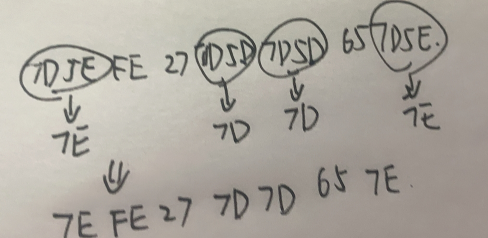 7D5E FE 27 7D5D 7D5D 65 7D5E.
7E 7D 7D 7E
7E FE 27 7D 7D 65 7E.